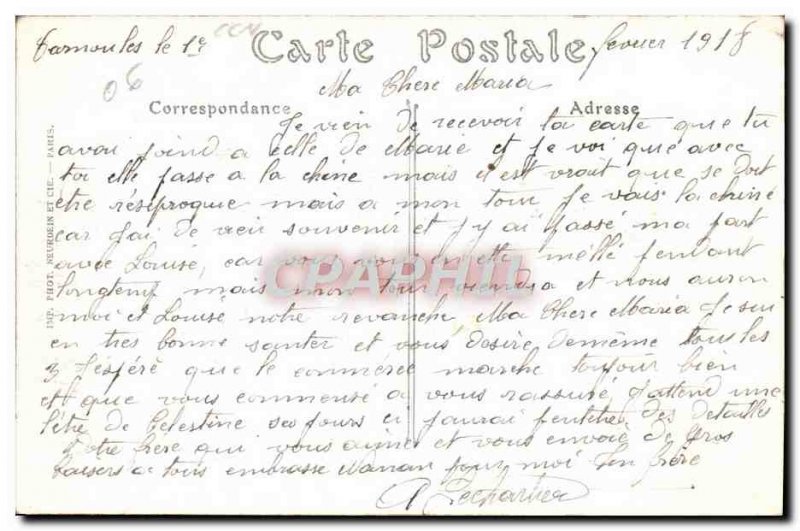 Tarnoules le 1er Carte Postale fevrier 1918
06
Ma Chere Maria
Correspondance Adresse
Je vien de recevoir ta carte que tu
avai joind a celle de Marie et je voi que avec
toi elle passe a la chine mais s'est vrait que se doit
etre résiproque mais a mon tour Je vais la chiné
car J'ai de vieu souvenir et J'y ai passé ma part
avec Louise, car vous nous en ette mellé pendant
longtemp mais mon tour viendra et nous auron
moi et Louise notre revanche Ma Chere Maria Je sui
en tres bonne santer et vous desire demême tous les
3 J'éspéré que le commerce marche toujour bien
et que vous commensé a vous rassuré J'attend une
létre de Celestine ses jours ci J'aurai peutetre des detailles
Votre frère qui vous aime et vous envoie de gros
baisers a tous embrasse Maman pour moi Ton frère
Lecharlier
IMP. PHOT. NEURDEIN ET CIE. — PARIS.
CPAPHIL